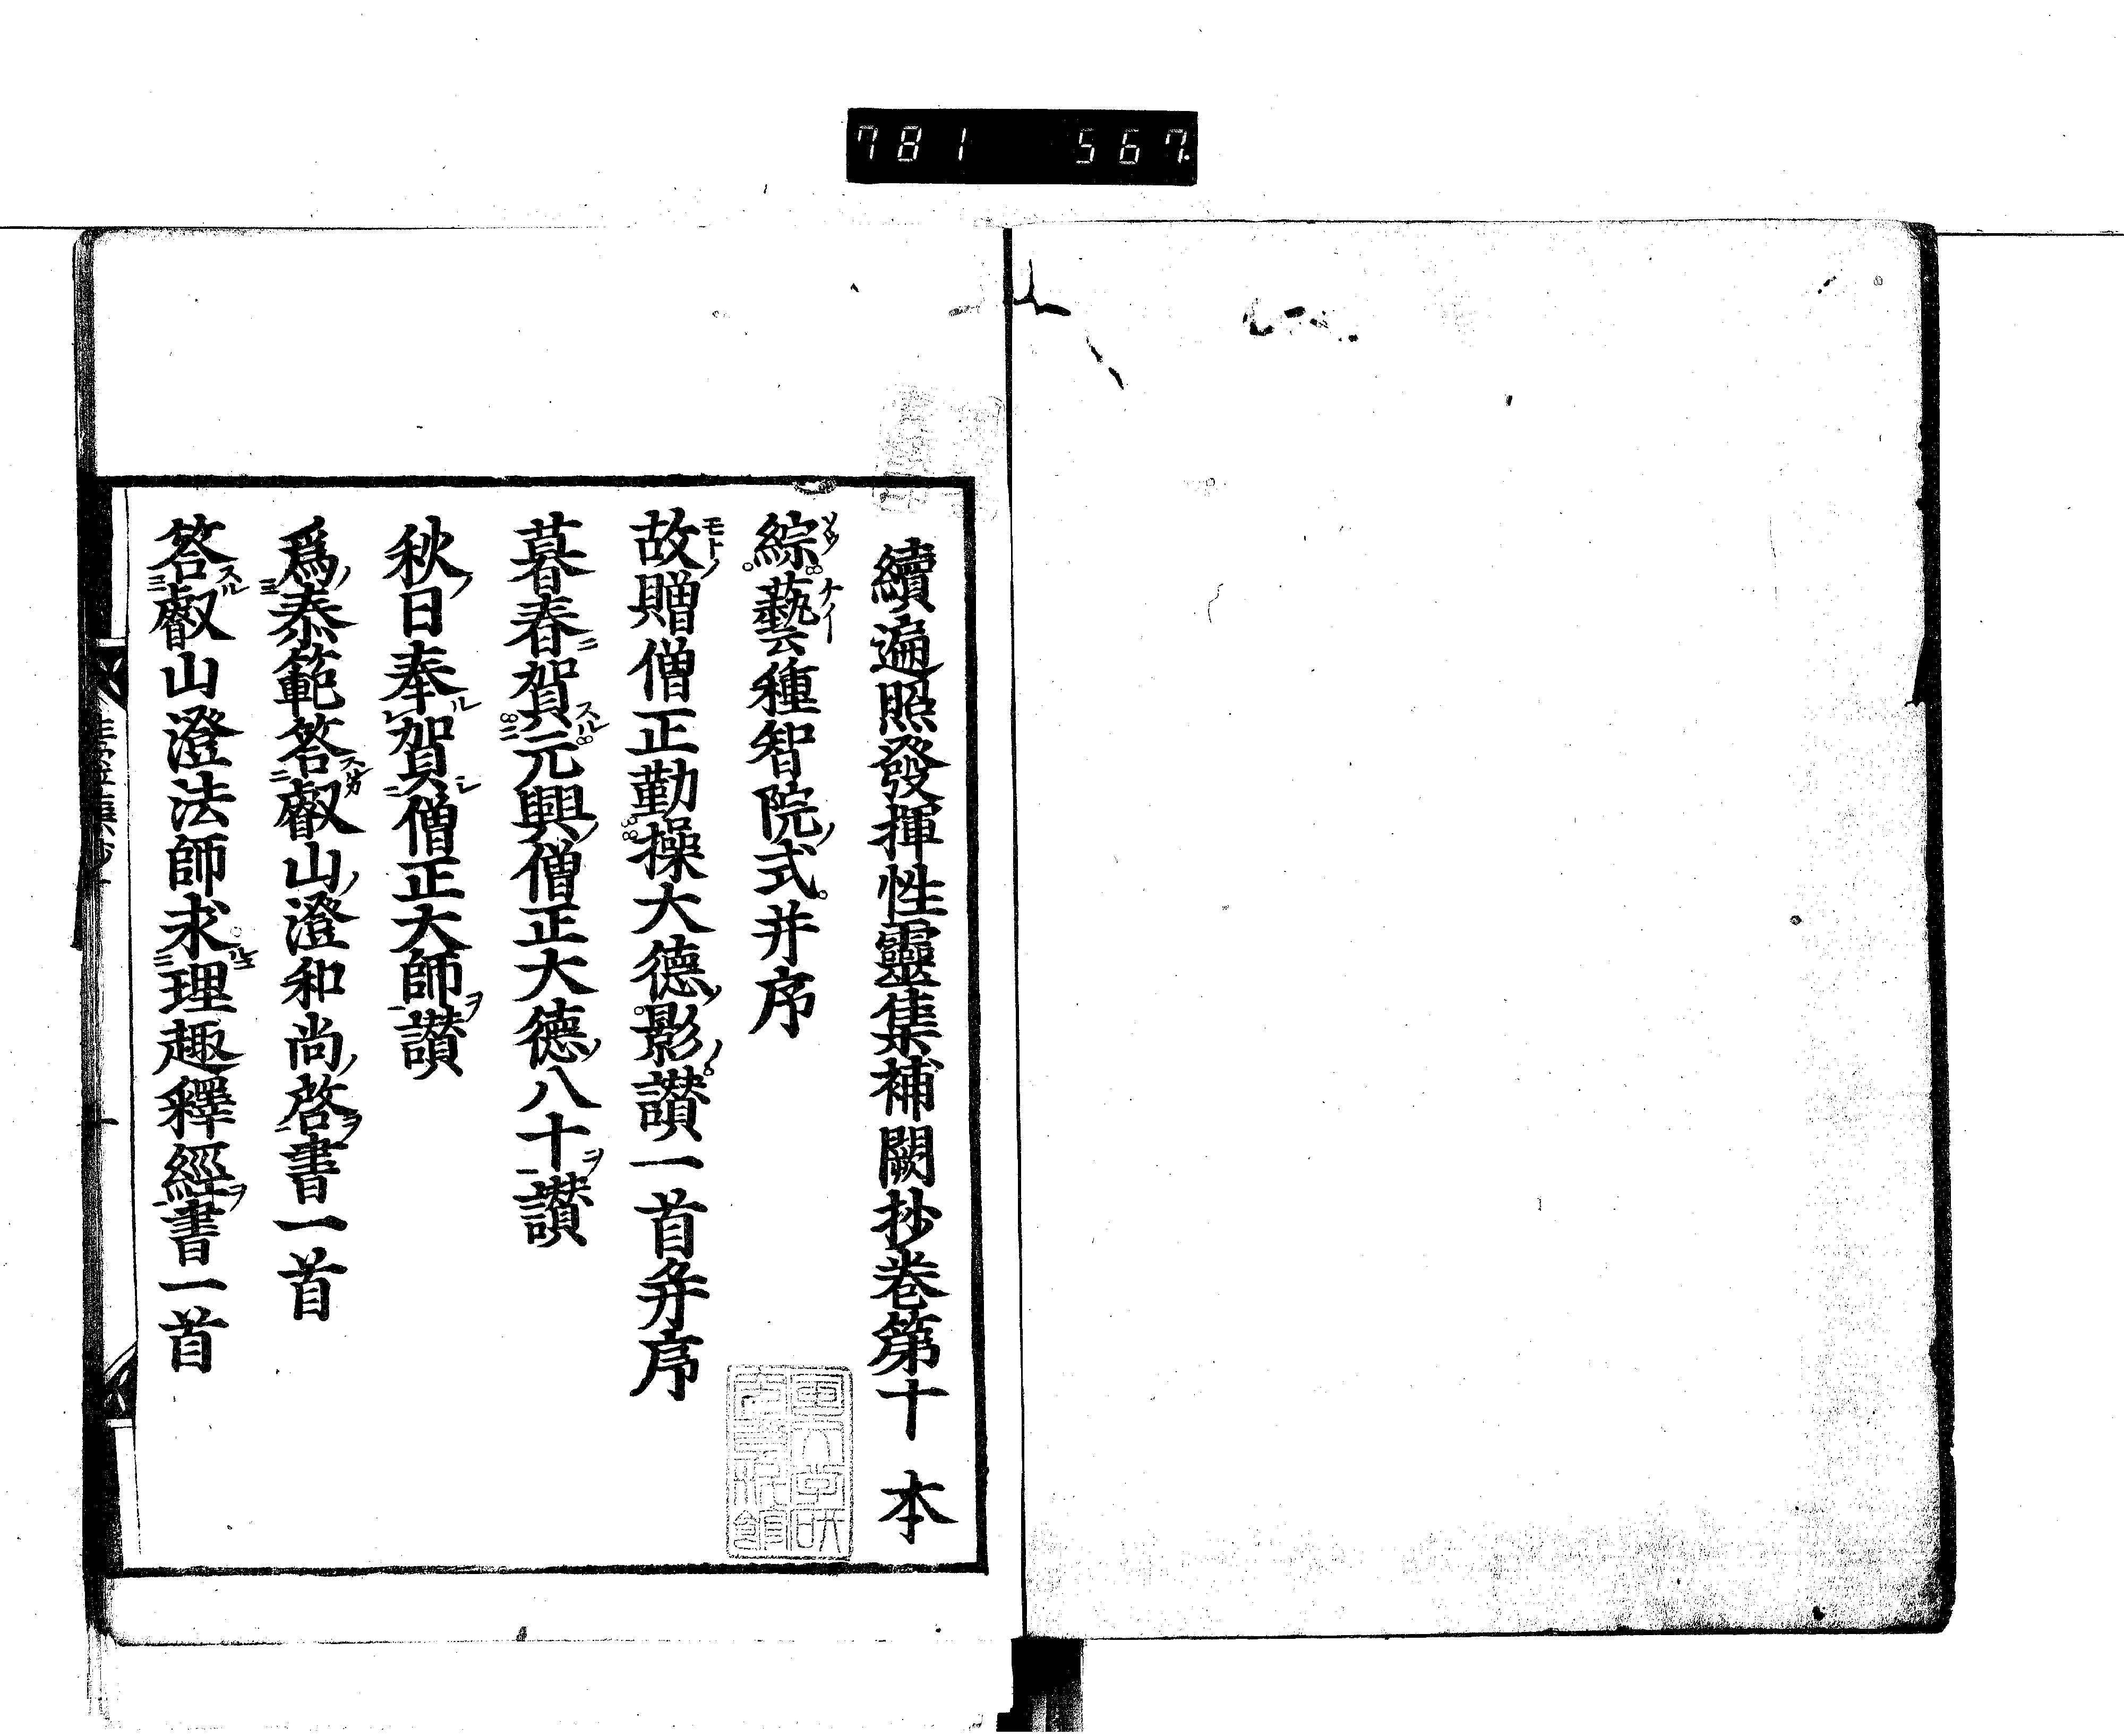 781 567
續遍照發揮性靈集補闕抄卷第十 本
綜藝種智院式并序
故贈僧正勤操大德影讃一首并序
暮春賀元興僧正大德八十讃
秋日奉賀僧正大師讃
爲泰範答叡山澄和尚啓書一首
答叡山澄法師求理趣釋經書一首